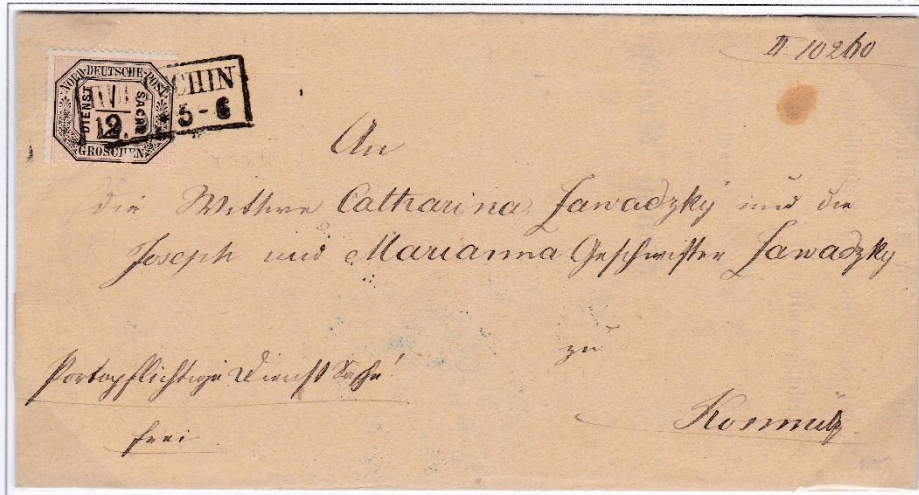 II 10260
NORD-DEUTSCHE-POST
DIENST SACHE
GROSCHEN
CHIN
12. 5-6
An
die Wittwe Catharina Zawadzky und die
Joseph und Marianna Geschwister Zawadzky
zu
Portopflichtige Dienst Sache
frei